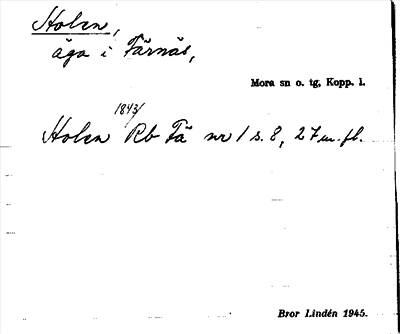 Holen,
äga i Färnäs,
Mora sn o. tg, Kopp. l.
1843/
Holen Rb Fä nr 1 s. 8, 27 m. fl.
Bror Lindén 1945.